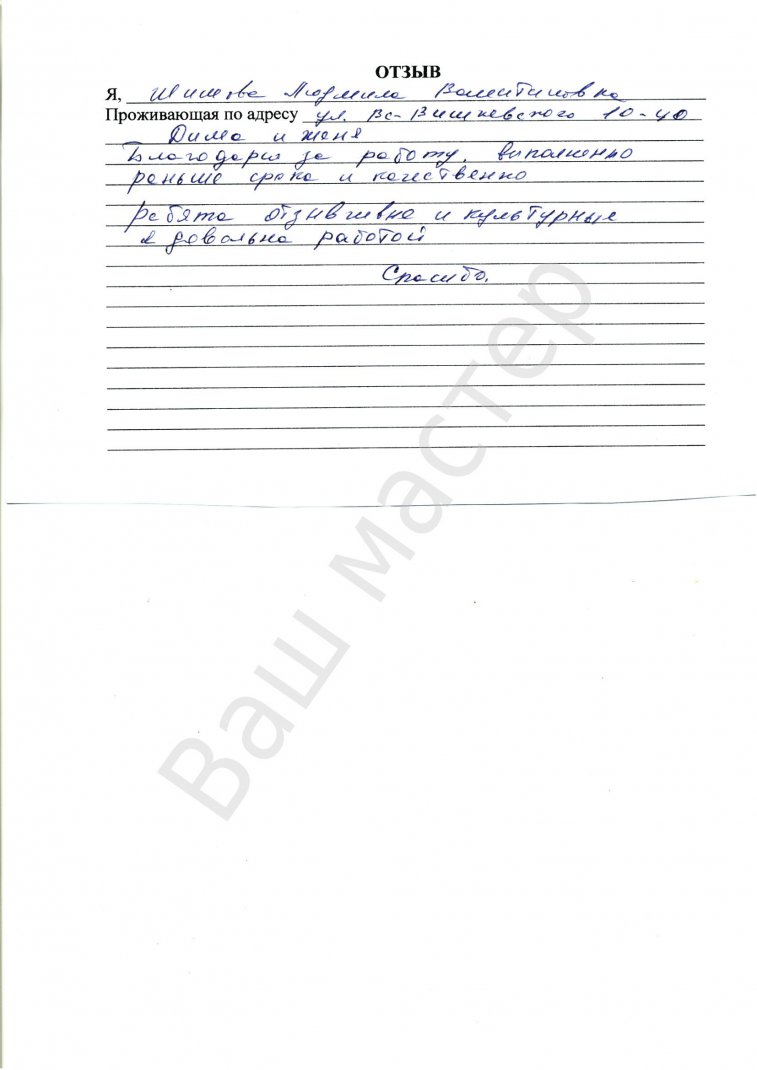 ОТЗЫВ
Я, Шишова Людмила Валентиновна
Проживающая по адресу ул. Вс-Вишневского 10-40
Дима и женя
Благодарю за работу. выполненно
раньше срока и качественно
Ребята отзывчивые и культурные
я довольна работой
Спасибо.
Ваш мастер